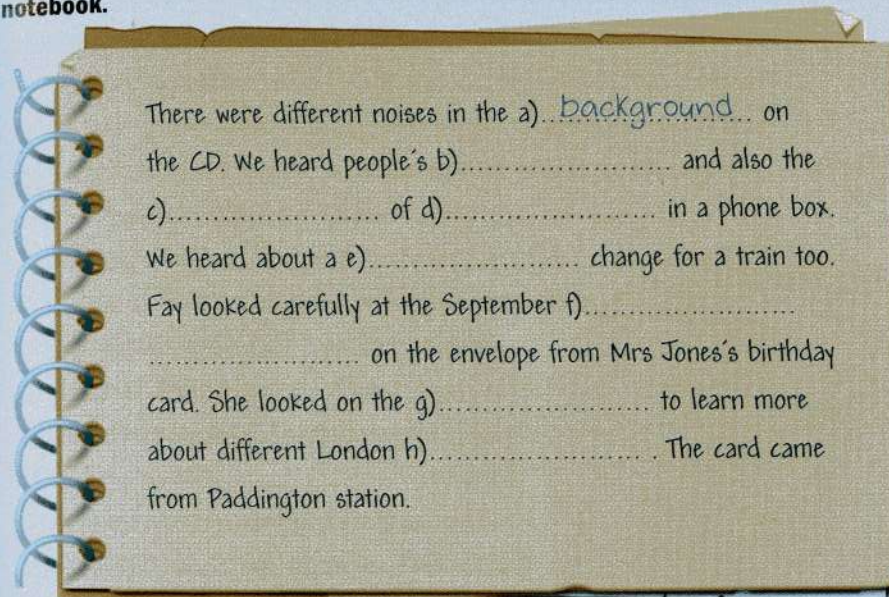 notebook.
There were different noises in the a)..background.. on
the CD. We heard people's b)........................ and also the
c)........................ of d)........................ in a phone box.
We heard about a e)........................ change for a train too.
Fay looked carefully at the September f)........................
........................ on the envelope from Mrs Jones's birthday
card. She looked on the g)........................ to learn more
about different London h)........................ . The card came
from Paddington station.